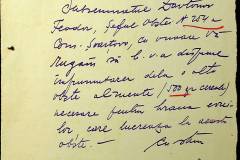 Subsemnatul
Teodor, Șeful Obștei N 254
Com. cu onoare vă
rugăm să b. v-a dispune
împrumutarea dela o altă
obște alimente (500 kg cereale)
necesare pentru hrana
care lucrează la această
obște. -